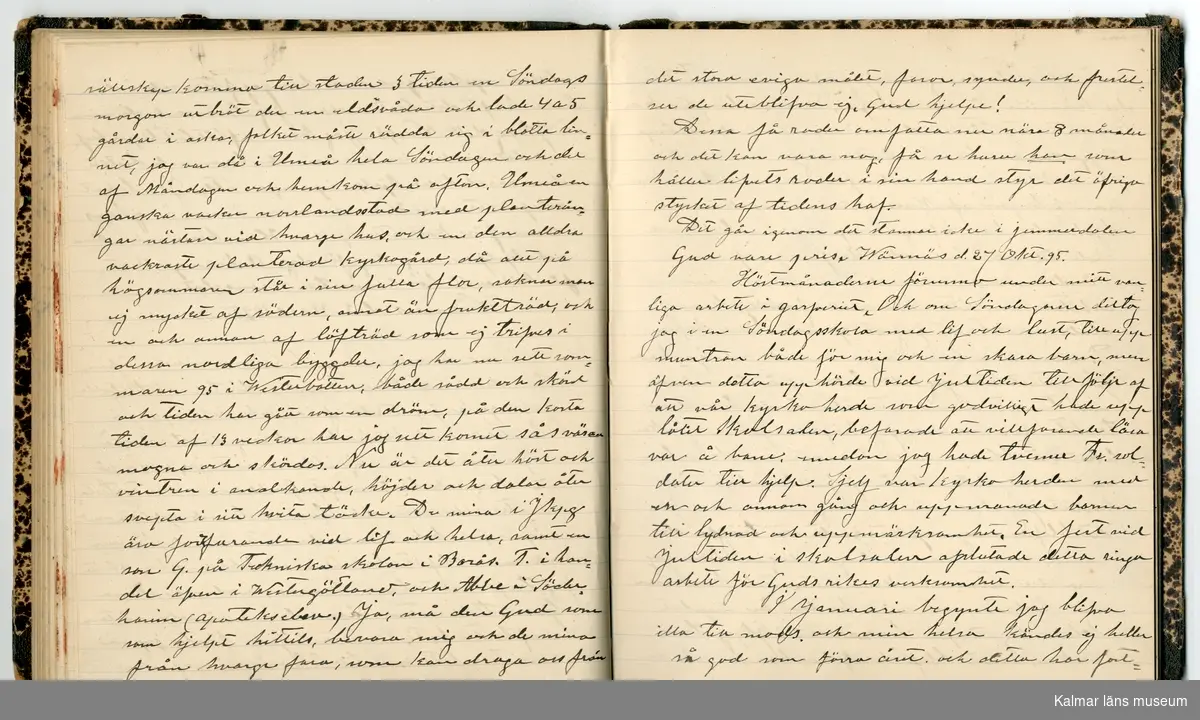 sällskap komma till staden 3 tiden en Söndags
morgon utbröt der en eldsvåda och lade 4 a 5
gårdar i aska, folket måste rädda sig i blotta lin-
net, jag var då i Umeå hela Söndagen och del
af Måndagen och hemkom på afton. Umeå en
ganska vacker norrlandsstad med planterin-
gar nästan vid hvarge hus, och en den alldra
vackraste planterad kyrkogård, då allt på
högsommaren står i sin fulla flor, saknar man
ej mycket af södern, annat än fruktträd, och
en och annan af löfträd som ej trifves i
dessa nordliga byggder, jag har nu sett som-
maren 95 i Westerbotten, både sådd och skörd
och tiden har gått som en dröm, på den korta
tiden af 13 veckor har jag sett kornet sås växa
mogna och skördas. Nu är det åter höst och
vintren i annalkande, höjder och dalar åter
svepta i sitt hvita täcke. De mina i Jkpg
äro fortfarande vid lif och helsa, samt en
son G. på Tekniska skolan i Borås. T. i han-
del äfven i Westergötland, och Abbe i Söder-
hamn (apotekselev.) Ja, må den Gud som
som hjelpt hittils, bevara mig och de mina
från hvarge fara, som kan draga oss från
det stora eviga målet, faror, synder, och frestel-
ser de uteblifva ej, Gud hjelpe!
Dessa få rader omfatta nu nära 8 månader
och det kan vara nog, få se huru han som
håller lifvets roder i sin hand styr det öfriga
stycket af tidens haf.
Det går igenom det stannar icke i jemmerdalen
Gud vare pris, Wännäs d. 27 Okt. 95.
Höstmånaderna försvunno under mitt van-
liga arbete i garfveriet, Och om Söndagarne deltog
jag i en Söndagsskola med lif och lust, till upp-
muntran både för mig och en skara barn, men
äfven detta upphörde vid Jultiden till följe af
att vår kyrkoherde som godvilligt hade upp
låtit Skolsalen, befarade att villfarande lära
var å bane; emedan jag hade tvenne Fr. sol-
dater till hjelp. Sjelf var kyrkoherden med
en och annan gång och uppmanade barnen
till lydnad och uppmärksamhet. En fest vid
Jultiden i skolsalen afslutade detta ringa
arbete för Guds rikes verksamhet.
I Januari begynte jag blifva
illa till mods, och min helsa kändes ej heller
så god som förra året. och detta har fort-
Kalmar läns museum